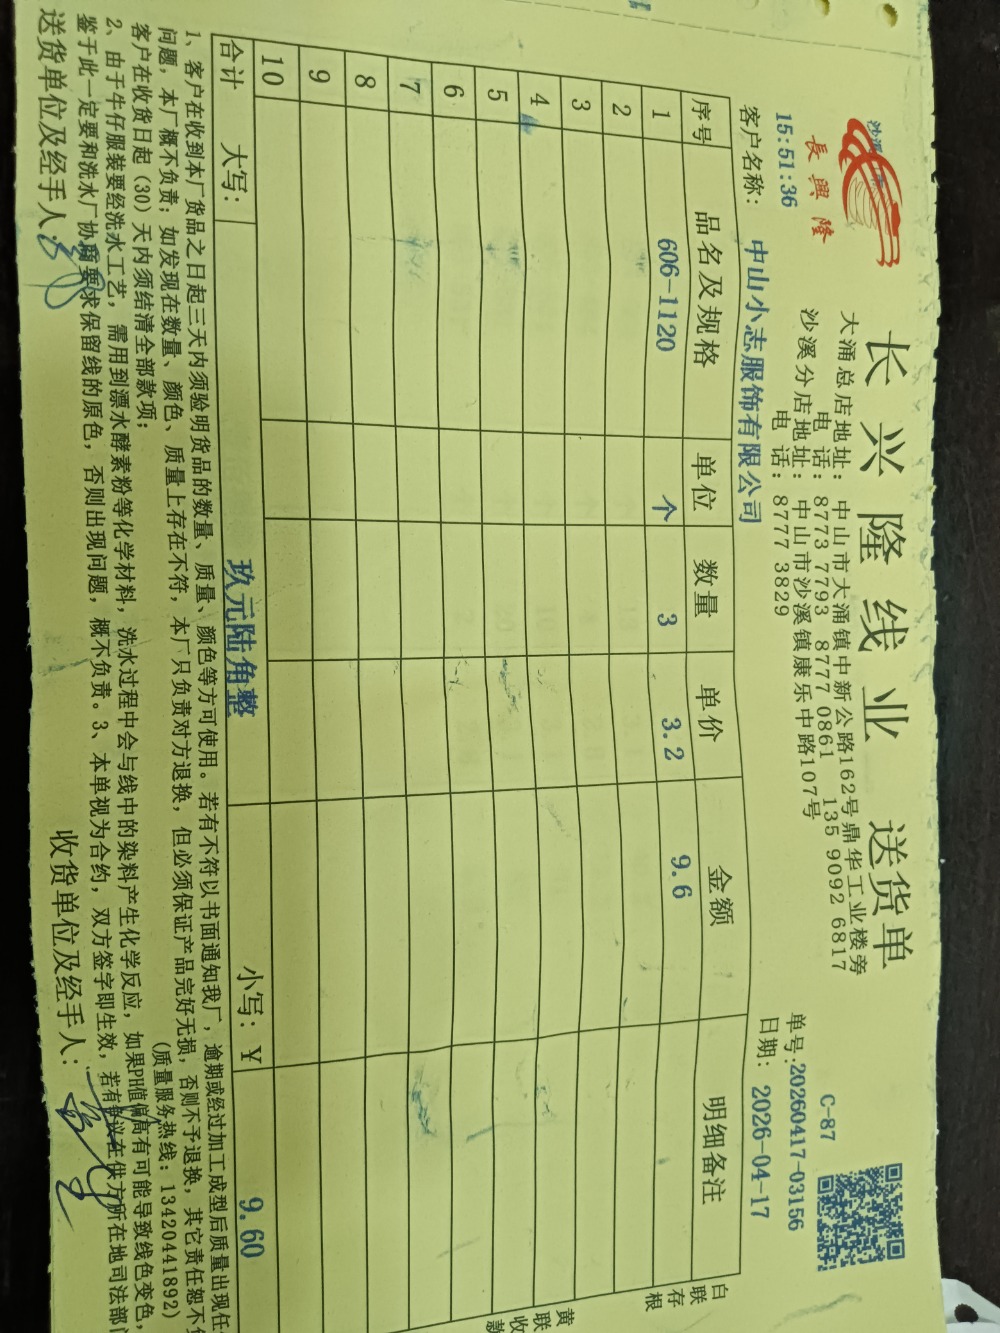 沙溪
長興隆
长兴隆线业 送货单
C-87
大涌总店地址:中山市大涌镇中新公路162号鼎华工业楼旁
电 话:8773 7793 8777 0861 135 9092 6817
单号:20260417-03156
沙溪分店地址:中山市沙溪镇康乐中路107号
15:51:36
电 话:8777 3829
日期: 2026-04-17
客户名称: 中山小志服饰有限公司
序号 品名及规格 单位 数量 单价 金额 明细备注
1 606-1120 个 3 3.2 9.6
2
3
4
5
6
7
8
9
10
合计 大写: 玖元陆角整 小写:¥ 9.60
白联存根
黄联收款
1、客户在收到本厂货品之日起三天内须验明货品的数量、质量、颜色等方可使用。若有不符以书面通知我厂,逾期或经过加工成型后质量出现任
问题,本厂概不负责;如发现在数量、颜色、质量上存在不符,本厂只负责对方退换,但必须保证产品完好无损,否则不予退换,其它责任恕不
客户在收货日起(30)天内须结清全部款项; (质量服务热线:13420441892)
2、由于牛仔服装要经洗水工艺,需用到漂水酵素粉等化学材料,洗水过程中会与线中的染料产生化学反应,如果PH值偏高有可能导致线色变色,
鉴于此一定要和洗水厂协商要求保留线的原色,否则出现问题,概不负责。3、本单视为合约,双方签字即生效,若有争议在供方所在地司法部
送货单位及经手人: 收货单位及经手人: